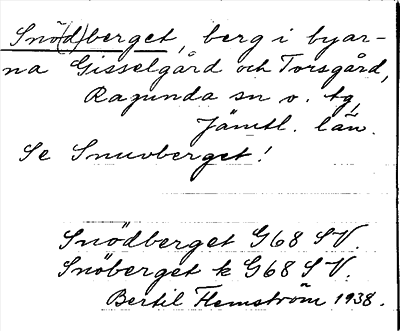 Snö(d)berget, berg i byar-
na Gisselgård och Torsgård,
Ragunda sn o. tg,
Jämtl. län.
Se Snuvberget!
Snödberget G68 SV.
Snöberget k G68 SV.
Bertil Flemström 1938.